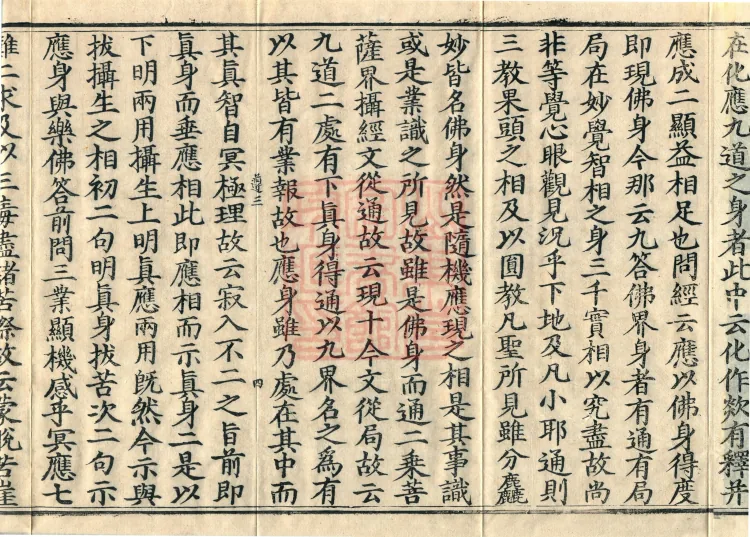 在化應九道之身者此中云化作欻有釋幷
應成二顯益相足也問經云應以佛身得度
即現佛身今那云九答佛界身者有通有局
局在妙覺智相之身三千實相以究盡故尚
非等覺心眼觀見況乎下地及凡小耶通則
三教果頭之相及以圓教凡聖所見雖分麁
妙皆名佛身然是隨機應現之相是其事識
或是業識之所見故雖是佛身而通二乘菩
薩界攝經文從通故云現十今文從局故云
九道二處有下眞身得通以九界名之爲有
以其皆有業報故也應身雖乃處在其中而
其眞智自冥極理故云寂入不二之旨前即
眞身而垂應相此即應相而示眞身二是以
下明兩用攝生上明眞應兩用旣然今示與
拔攝生之相初二句明眞身拔苦次二句示
應身與樂佛答前問三業顯機感乎冥應七
難二求及以三毒盡諸苦際故云蒙脫苦崖
三
四